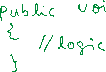 public voi
{
//logic
}